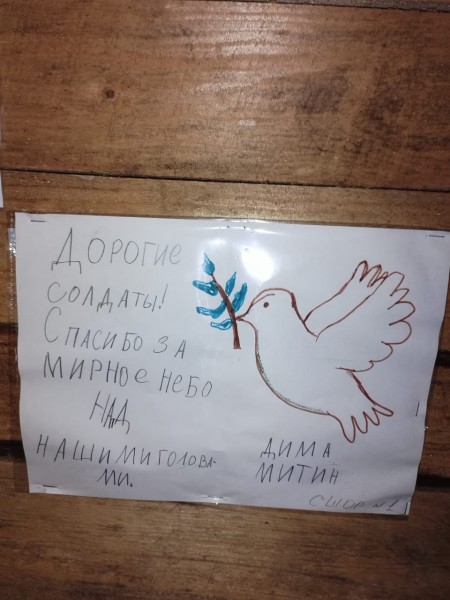 Дорогие
солдаты!
Спасибо за
мирное небо
над
нашими голова-
ми.
Дима
Митин
СШОР №1